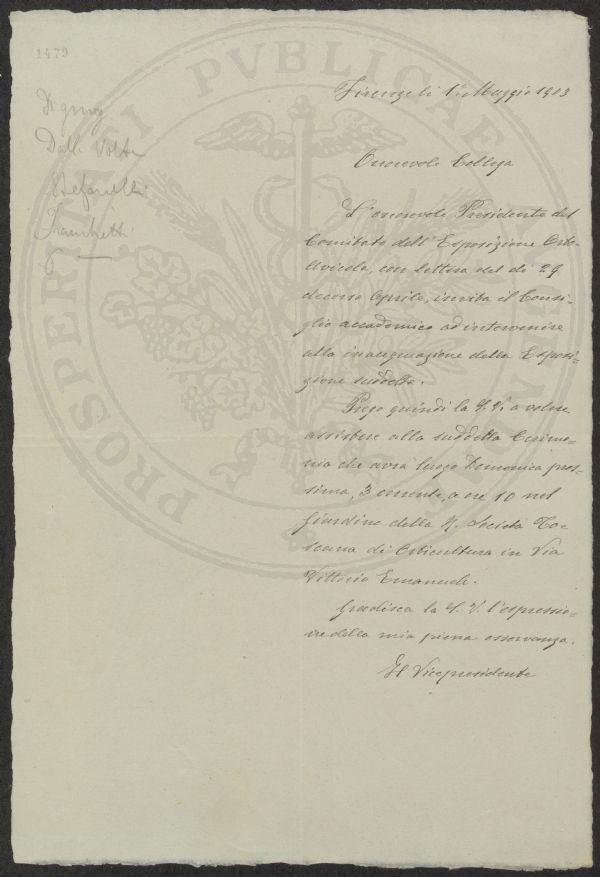 1479
Dalla Volta
Stefanelli
Franchetti
Firenze li 1° Maggio 1903
Onorevole Collega
L'onorevole Presidente del
Comitato dell'Esposizione Orto-
Avicola, con lettera del dì 29
decorso Aprile, invita il Consi-
glio accademico ad intervenire
alla inaugurazione della Esposi-
zione suddetta.
Prego quindi la S. V. a volere
assistere alla suddetta Cerimo-
nia che avrà luogo Domenica pros-
sima, 3 corrente, a ore 10 nel
Giardino della R. Società To-
scana di Orticultura in Via
Vittorio Emanuele.
Gradisca la S. V. l'espressio-
ne della mia piena osservanza.
Il Vicepresidente
PROSPERITATI PVBLICAE AVGENDAE